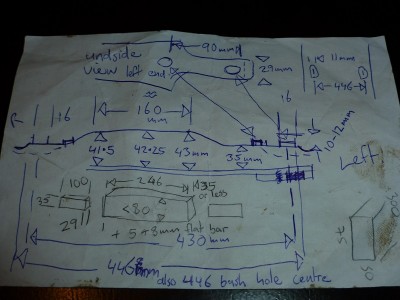 undside
view left end
90mm
29mm
11mm
446
16
160
mm
16
10-12mm
41.5
42.25
43mm
35mm
Left
100
246
35
or less
35
29
<80
+ 5 + 8mm flat bar
430
mm
446mm
also 446 bush hole centre
50